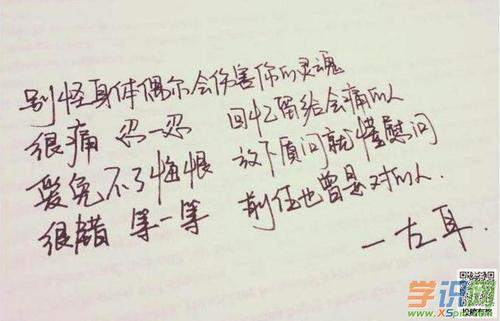 别怪身体偶尔会伤害你的灵魂
很痛 忍一忍 回忆留给会痛的人
爱免不了悔恨 放下质问就懂慰问
很 等一等 前任也曾是对的人.
—左耳.
学识网